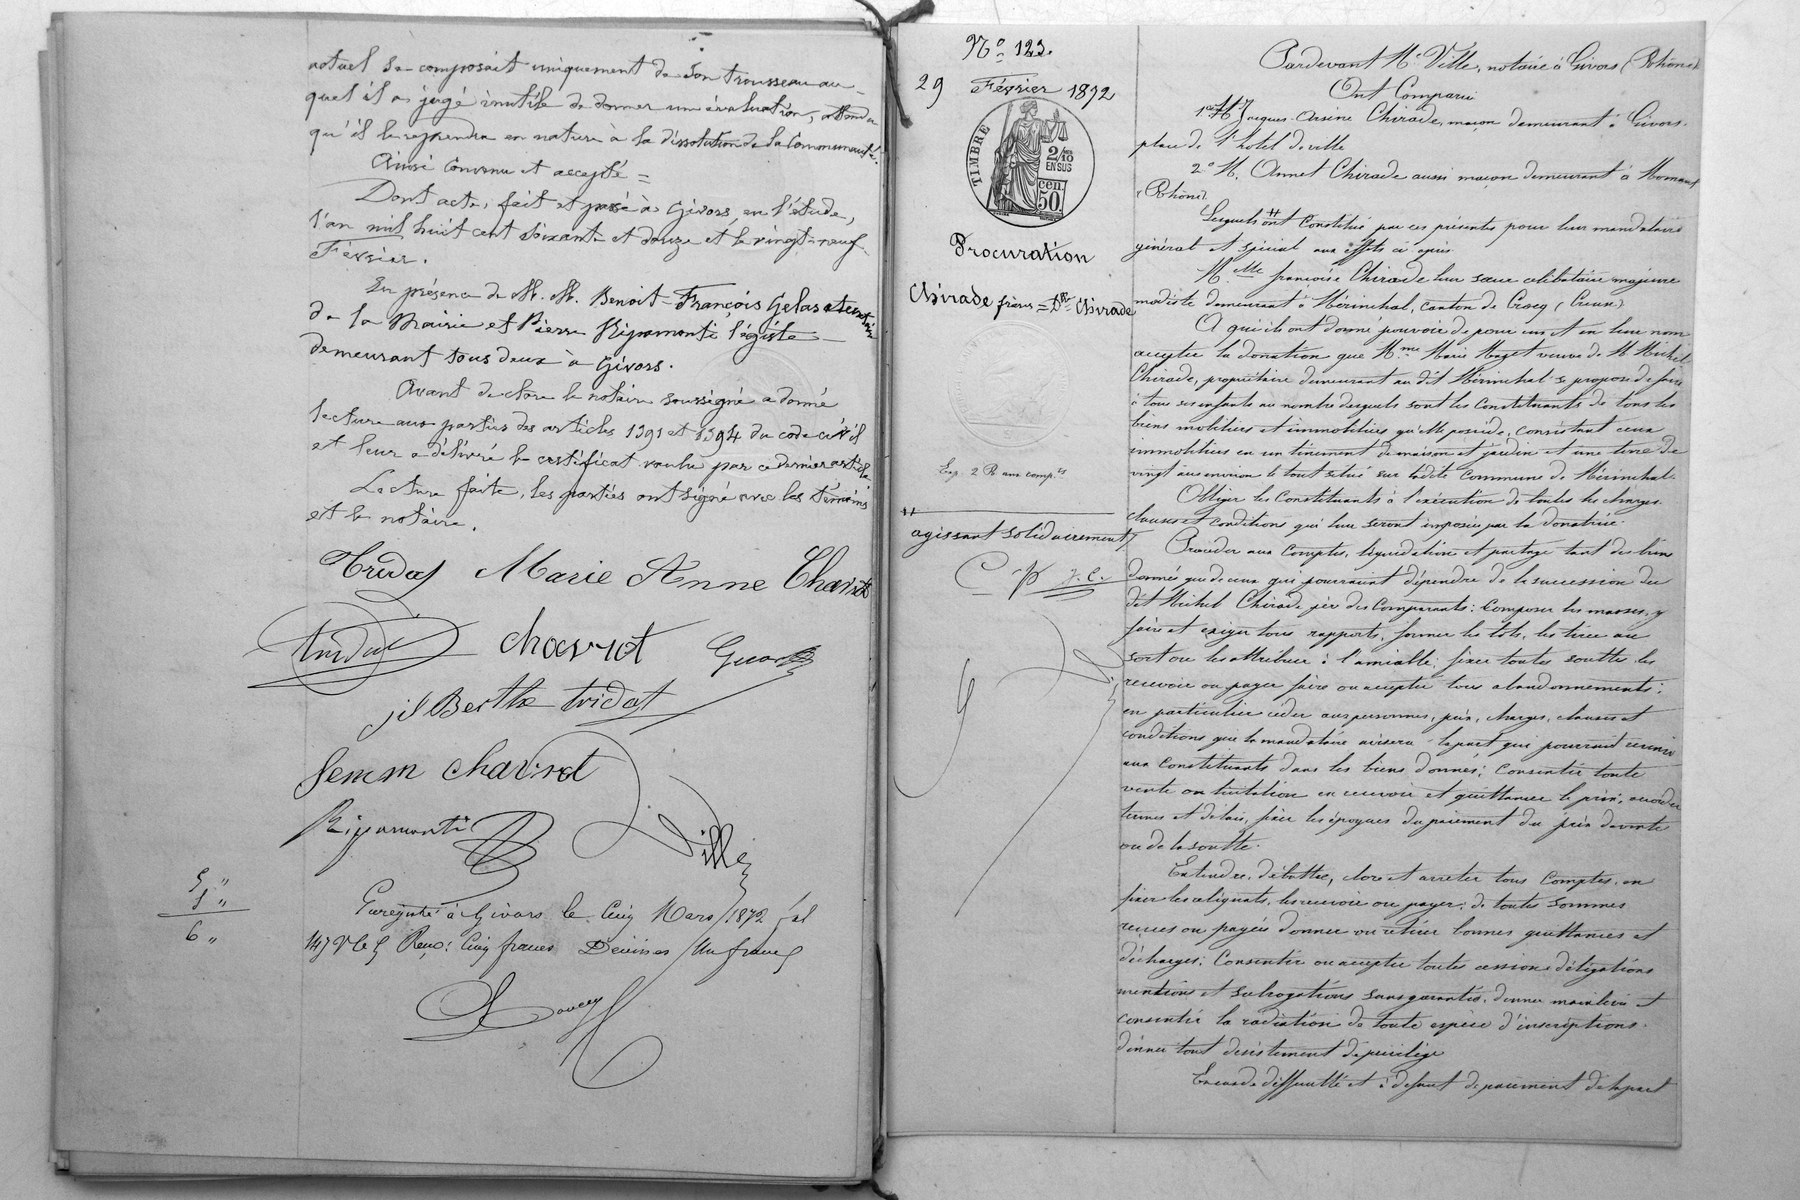 actuel se composait uniquement de son trousseau au-
quel il a jugé inutile de donner une évaluation, attendu
qu'il le reprendra en nature à la dissolution de la Communauté.
Ainsi Convenu et accepté =
Dont acte, fait et passé à Givors, en l'étude,
l'an mil huit cent soixante et douze et le vingt-neuf
Février.
En présence de M. M. Benoit-François Gelas
de la Mairie et Pierre Ripamonti légiste
demeurant tous deux à Givors.
Avant de clore le notaire soussigné a donné
lecture aux parties des articles 1391 et 1394 du code civil
et leur a délivré le certificat voulu par ce dernier article
Lecture faite, les parties ont signé avec les témoins
et le notaire.
Tridat Marie Anne Chavrot
Tridat chavrot
Berthe tridat
femm chavrot
Ripamonti Ville
5 "
1 "
6 "
Enregistré à Givors le Cinq Mars 1872 fol
147 Reçu: Cinq francs Décimes Un franc
No 123.
29 Février 1872
TIMBRE
2/10
EN SUS
cen.
50.
Procuration
Chirade frères = Dlle Chirade
agissant solidairement
J. C.
Pardevant Me Ville, notaire à Givors (Rhône)
Ont Comparu
1° M. Jacques-Arsène Chirade, maçon demeurant à Givors
place de l'hotel de ville
2° M. Annet Chirade aussi maçon demeurant à Mornant
(Rhône)
Lesquels ont Constitué par ces présentes pour leur mandataire
général et spécial aux effets ci après
Melle françoise Chirade leur sœur célibataire majeure
modiste demeurant à Mérinchal, canton de Crocq (Creuse)
A qui ils ont donné pouvoir de pour eux et en leur nom
accepter la donation que Mme Marie Mazet veuve de M. Michel
Chirade, propriétaire demeurant au dit Mérinchal se propose de faire
à tous ses enfants au nombre desquels sont les Constituants de tous les
biens mobiliers et immobiliers qu'elle possède, consistant ceux
immobiliers en un tènement de maison et jardin et une terre de
vingt ares environ le tout situé sur ladite Commune de Mérinchal.
Obliger les Constituants à l'exécution de toutes les charges
clauses et conditions qui leur seront imposées par la donatrice.
Procéder aux Comptes, liquidation et partage tant des biens
donnés que de ceux qui pourraient dépendre de la succession du
dit Michel Chirade père des Comparants: Composer les masses, y
faire et exiger tous rapports, former les lots, les tirer au
sort ou les attribuer à l'amiable, fixer toutes soultes les
recevoir ou payer faire ou accepter tous abandonnements:
en particulier céder aux personnes, prix, charges, clauses et
conditions que la mandataire avisera la part qui pourrait revenir
aux Constituants dans les biens donnés: Consentir toute
vente ou licitation en recevoir et quittancer le prix, accorder
termes et délais, fixer les époques du paiement du prix de vente
ou de la soulte.
Entendre, débattre, clore et arrêter tous Comptes, en
fixer les reliquats, les recevoir ou payer: de toutes sommes
reçues ou payées donner ou retirer bonnes quittances et
décharges: Consentir ou accepter toutes cessions délégations
mentions et subrogations sans garantie, donner mainlevée et
consentir la radiation de toute espèce d'inscriptions.
donner tout désistement de privilège
En cas de difficulté et à défaut de paiement de la part